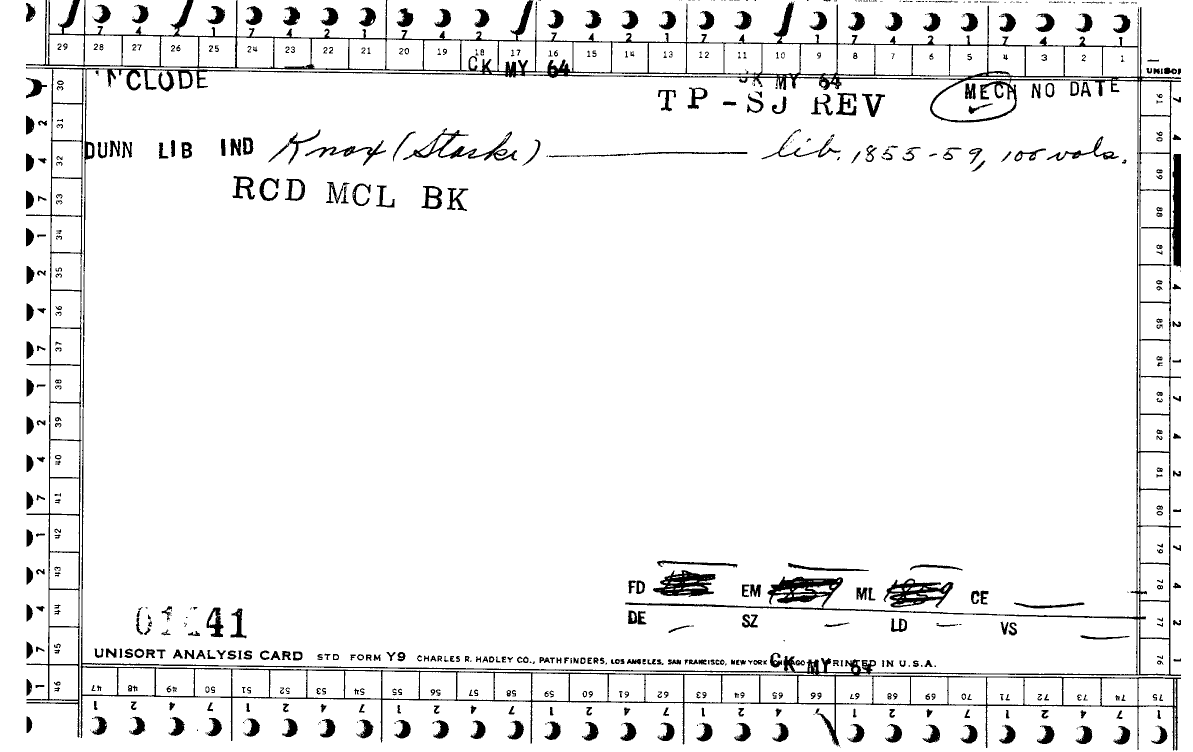 7 4 2 1 7 4 2 1 7 4 2 1 7 4 2 1 7 4 2 1 7 4 2 1 7 4 2 1
29 28 27 26 25 24 23 22 21 20 19 18 17 16 15 14 13 12 11 10 9 8 7 6 5 4 3 2 1
CK MY 64 CK MY 64
NCLUDE TP-SJ REV MECH NO DATE
DUNN LIB IND Knox (Starke) lib. 1855-59, 100 vols.
RCD MCL BK
30 31 32 33 34 35 36 37 38 39 40 41 42 43 44 45 46
91 90 89 88 87 86 85 84 83 82 81 80 79 78 77 76
FD EM 1859 ML 1859 CE
DE SZ LD VS
41
UNISORT ANALYSIS CARD STD FORM Y9 CHARLES R. HADLEY CO., PATHFINDERS, LOS ANGELES, SAN FRANCISCO, NEW YORK PRINTED IN U.S.A.
CK MY 64
47 48 49 50 51 52 53 54 55 56 57 58 59 60 61 62 63 64 65 66 67 68 69 70 71 72 73 74 75
1 2 4 7 1 2 4 7 1 2 4 7 1 2 4 7 1 2 4 7 1 2 4 7 1 2 4 7 1